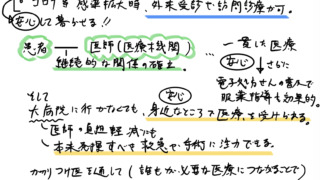 コロナ 感染拡大時、外来受診で訪問診療が可。
安心して暮らせる!!
患者 ― 医師(医療機関) … 一貫した医療
継続的な関係の確立。 安心 さらに
電子処方せんの普及で
服薬指導も効果的。
そして 安心
大病院に行かなくても、身近なところで医療を受けられる。
→ 医師の負担軽減にも
本来処理すべき救急や手術に注力できる。
かかりつけ医を通して(誰もが必要な医療につながることで)